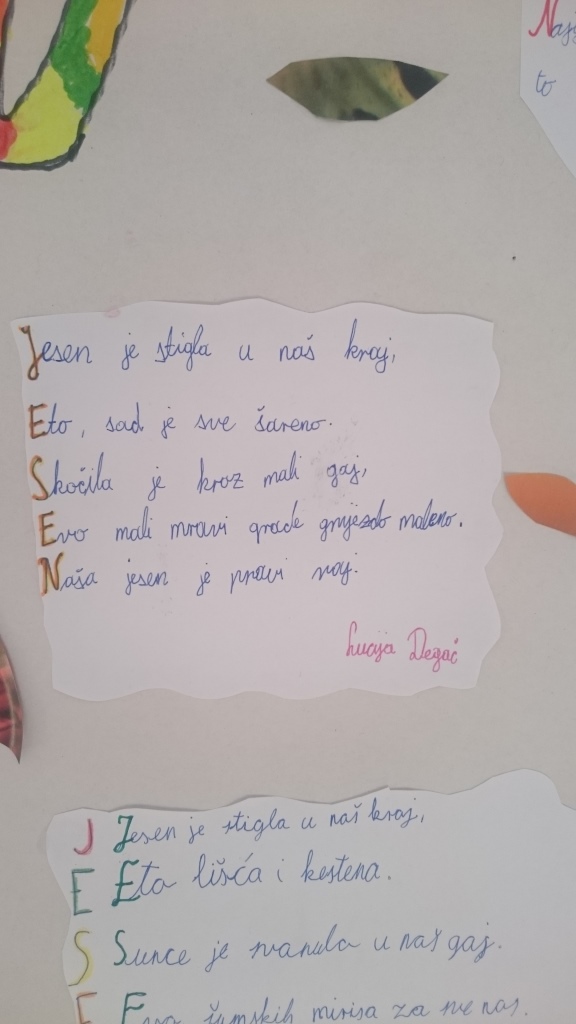 Naj
to
Jesen je stigla u naš kraj,
Eto, sad je sve šareno.
Skočila je kroz mali gaj,
Evo mali mravi grade gnijezdo maleno.
Naša jesen je pravi raj.
Lucija Degač
J Jesen je stigla u naš kraj,
E Eto lišća i kestena.
S Sunce je u naš gaj.
E Evo šumskih mirisa za sve nas.